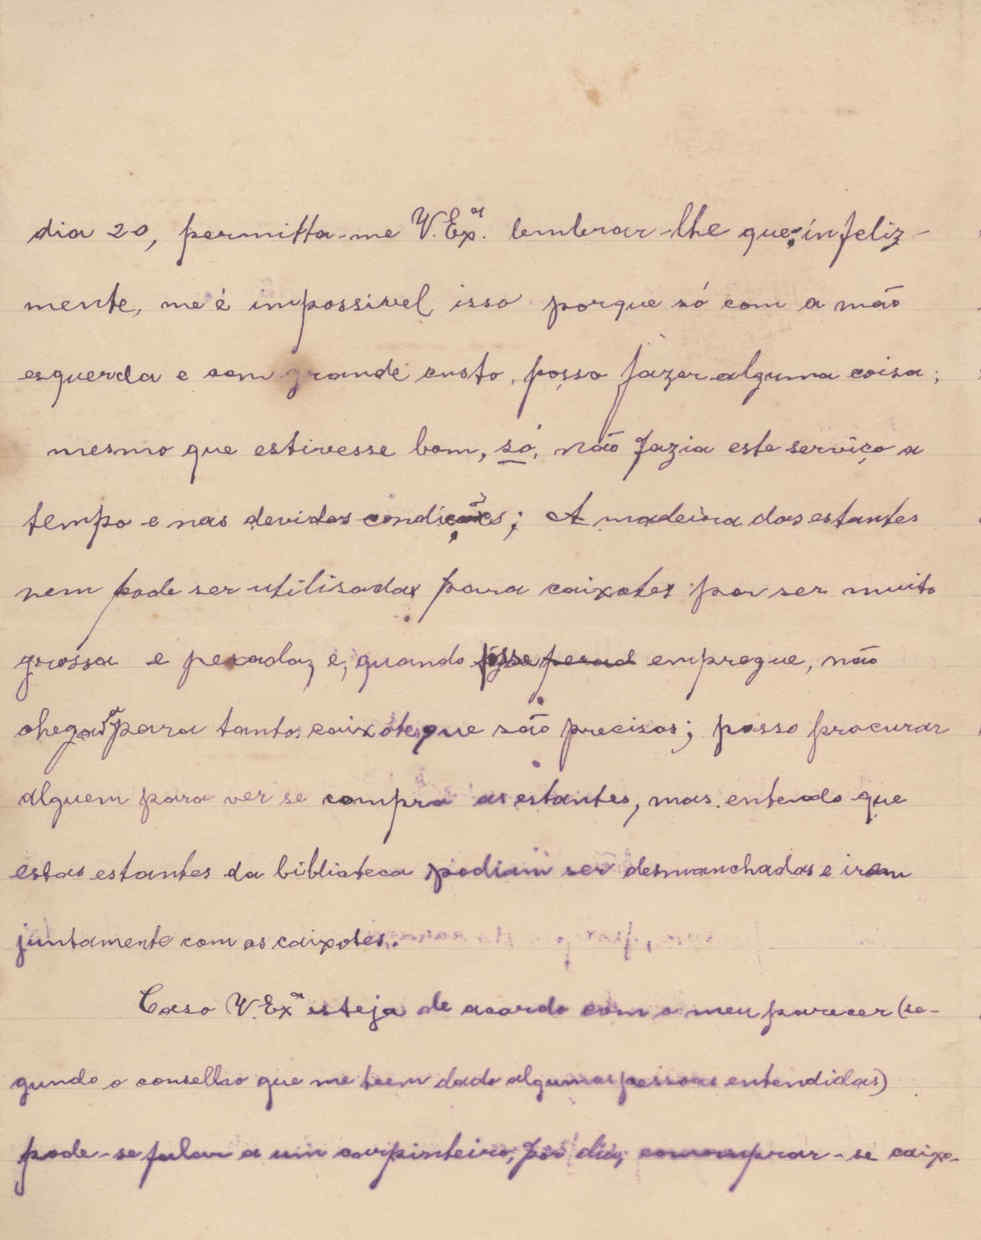 dia 20, permitta-me V. Exª. lembrar-lhe que, infeliz-
mente, me é impossivel isso porque só com a mão
esquerda e com grande custo, posso fazer alguma coisa;
mesmo que estivesse bom, só, não fazia este serviço a
tempo e nas devidas condições; A madeira das estantes
nem pode ser utilisada para caixotes por ser muito
grossa e pesada, e, quando fôsse empregue, não
chegava para tantos caixotes que são precisos; posso procurar
alguem para ver se compra as estantes, mas entendo que
estas estantes da biblioteca podiam ser desmanchadas e irem
juntamente com os caixotes.
Caso V. Exª esteja de acordo com o meu parecer (se-
gundo o conselho que me teem dado algumas pessoas entendidas)
pode-se falar a um carpinteiro, por dia, comprar-se caixo-